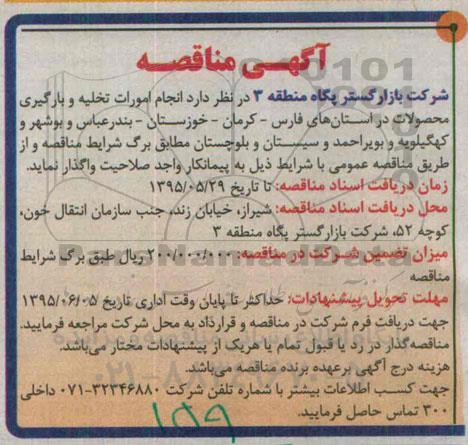 آگهی مناقصه
شرکت بازارگستر پگاه منطقه ۳ در نظر دارد انجام امورات تخلیه و بارگیری
محصولات در استان‌های فارس - کرمان - خوزستان - بندرعباس و بوشهر و
کهگیلویه و بویراحمد و سیستان و بلوچستان مطابق برگ شرایط مناقصه و از
طریق مناقصه عمومی با شرایط ذیل به پیمانکار واجد صلاحیت واگذار نماید.
زمان دریافت اسناد مناقصه: تا تاریخ ۱۳۹۵/۰۵/۲۹
محل دریافت اسناد مناقصه: شیراز، خیابان زند، جنب سازمان انتقال خون،
کوچه ۵۲، شرکت بازارگستر پگاه منطقه ۳
میزان تضمین شرکت در مناقصه: ۲۰۰/۰۰۰/۰۰۰ ریال طبق برگ شرایط
مناقصه
مهلت تحویل پیشنهادات: حداکثر تا پایان وقت اداری تاریخ ۱۳۹۵/۰۶/۰۵
جهت دریافت فرم شرکت در مناقصه و قرارداد به محل شرکت مراجعه فرمایید.
مناقصه‌گذار در رد یا قبول تمام یا هریک از پیشنهادات مختار می‌باشد.
هزینه درج آگهی برعهده برنده مناقصه می‌باشد.
جهت کسب اطلاعات بیشتر با شماره تلفن شرکت ۳۲۳۴۶۸۸۰-۰۷۱ داخلی
۳۰۰ تماس حاصل فرمایید.